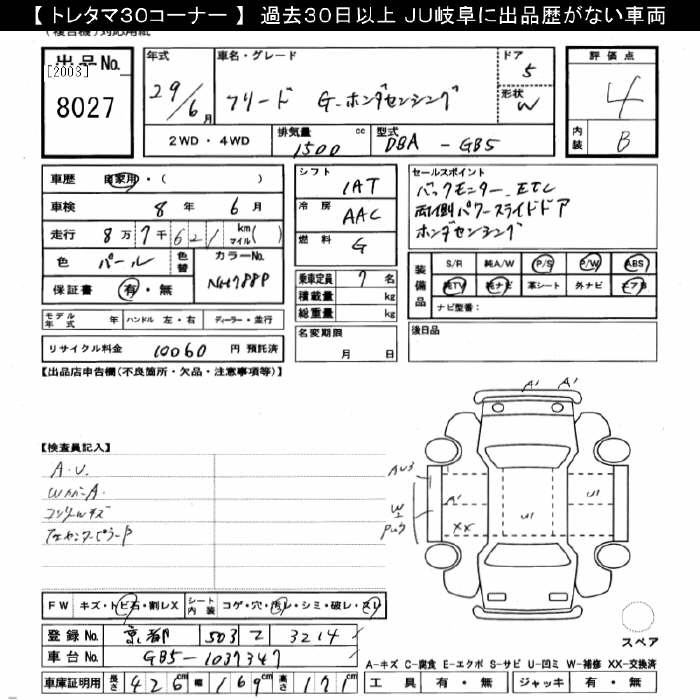 【 トレタマ30コーナー 】 過去30日以上 JU岐阜に出品歴がない車両
出品No.
[2003]
8027
年式
29/6月
車名・グレード
フリード G-ホンダセンシング
ドア
5
形状
W
2WD ・ 4WD
排気量
1500 cc
型式
DBA - GB5
評価点
4
内装
B
車歴 自家用・( )
車検 8 年 6 月
走行 8 万 7 千 621 km マイル( )
色 パール 色替
カラーNo.
NH788P
保証書 有・無
シフト
IAT
冷房
AAC
燃料
G
乗車定員 7 名
積載量 kg
総重量 kg
セールスポイント
バックモニター、ETC
両側パワースライドドア
ホンダセンシング
装備品
S/R 純A/W P/S P/W ABS
純TV 純ナビ 革シート 外ナビ エアB
ナビ型番：
モデル年式 年 ハンドル 左・右 ディーラー・並行
リサイクル料金 10060 円 預託済
名変期限
月 日
後日品
【出品店申告欄(不良箇所・欠品・注意事項等)】
A' A'
【検査員記入】
A.U.
コンソールキズ
AU3
W
A'
XX
U1
U1
FW キズ・トビ石・割レX
シート内装 コゲ・穴・汚レ・シミ・破レ・スレ
登録No. 京都 503 そ 3214
車台No. GB5-1037347
車庫証明用 長さ 426cm 幅 169cm 高さ 171cm
スペア
A-キズ C-腐食 E-エクボ S-サビ U-凹ミ W-補修 XX-交換済
工具 有・無 ジャッキ 有・無